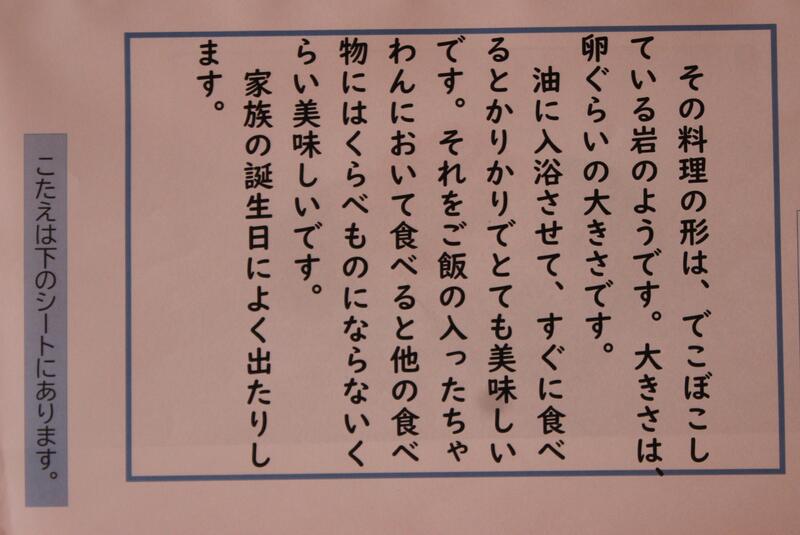 その料理の形は、でこぼこし
ている岩のようです。大きさは、
卵ぐらいの大きさです。
油に入浴させて、すぐに食べ
るとかりかりでとても美味しい
です。それをご飯の入ったちゃ
わんにおいて食べると他の食べ
物にはくらべものにならないく
らい美味しいです。
家族の誕生日によく出たりし
ます。
こたえは下のシートにあります。